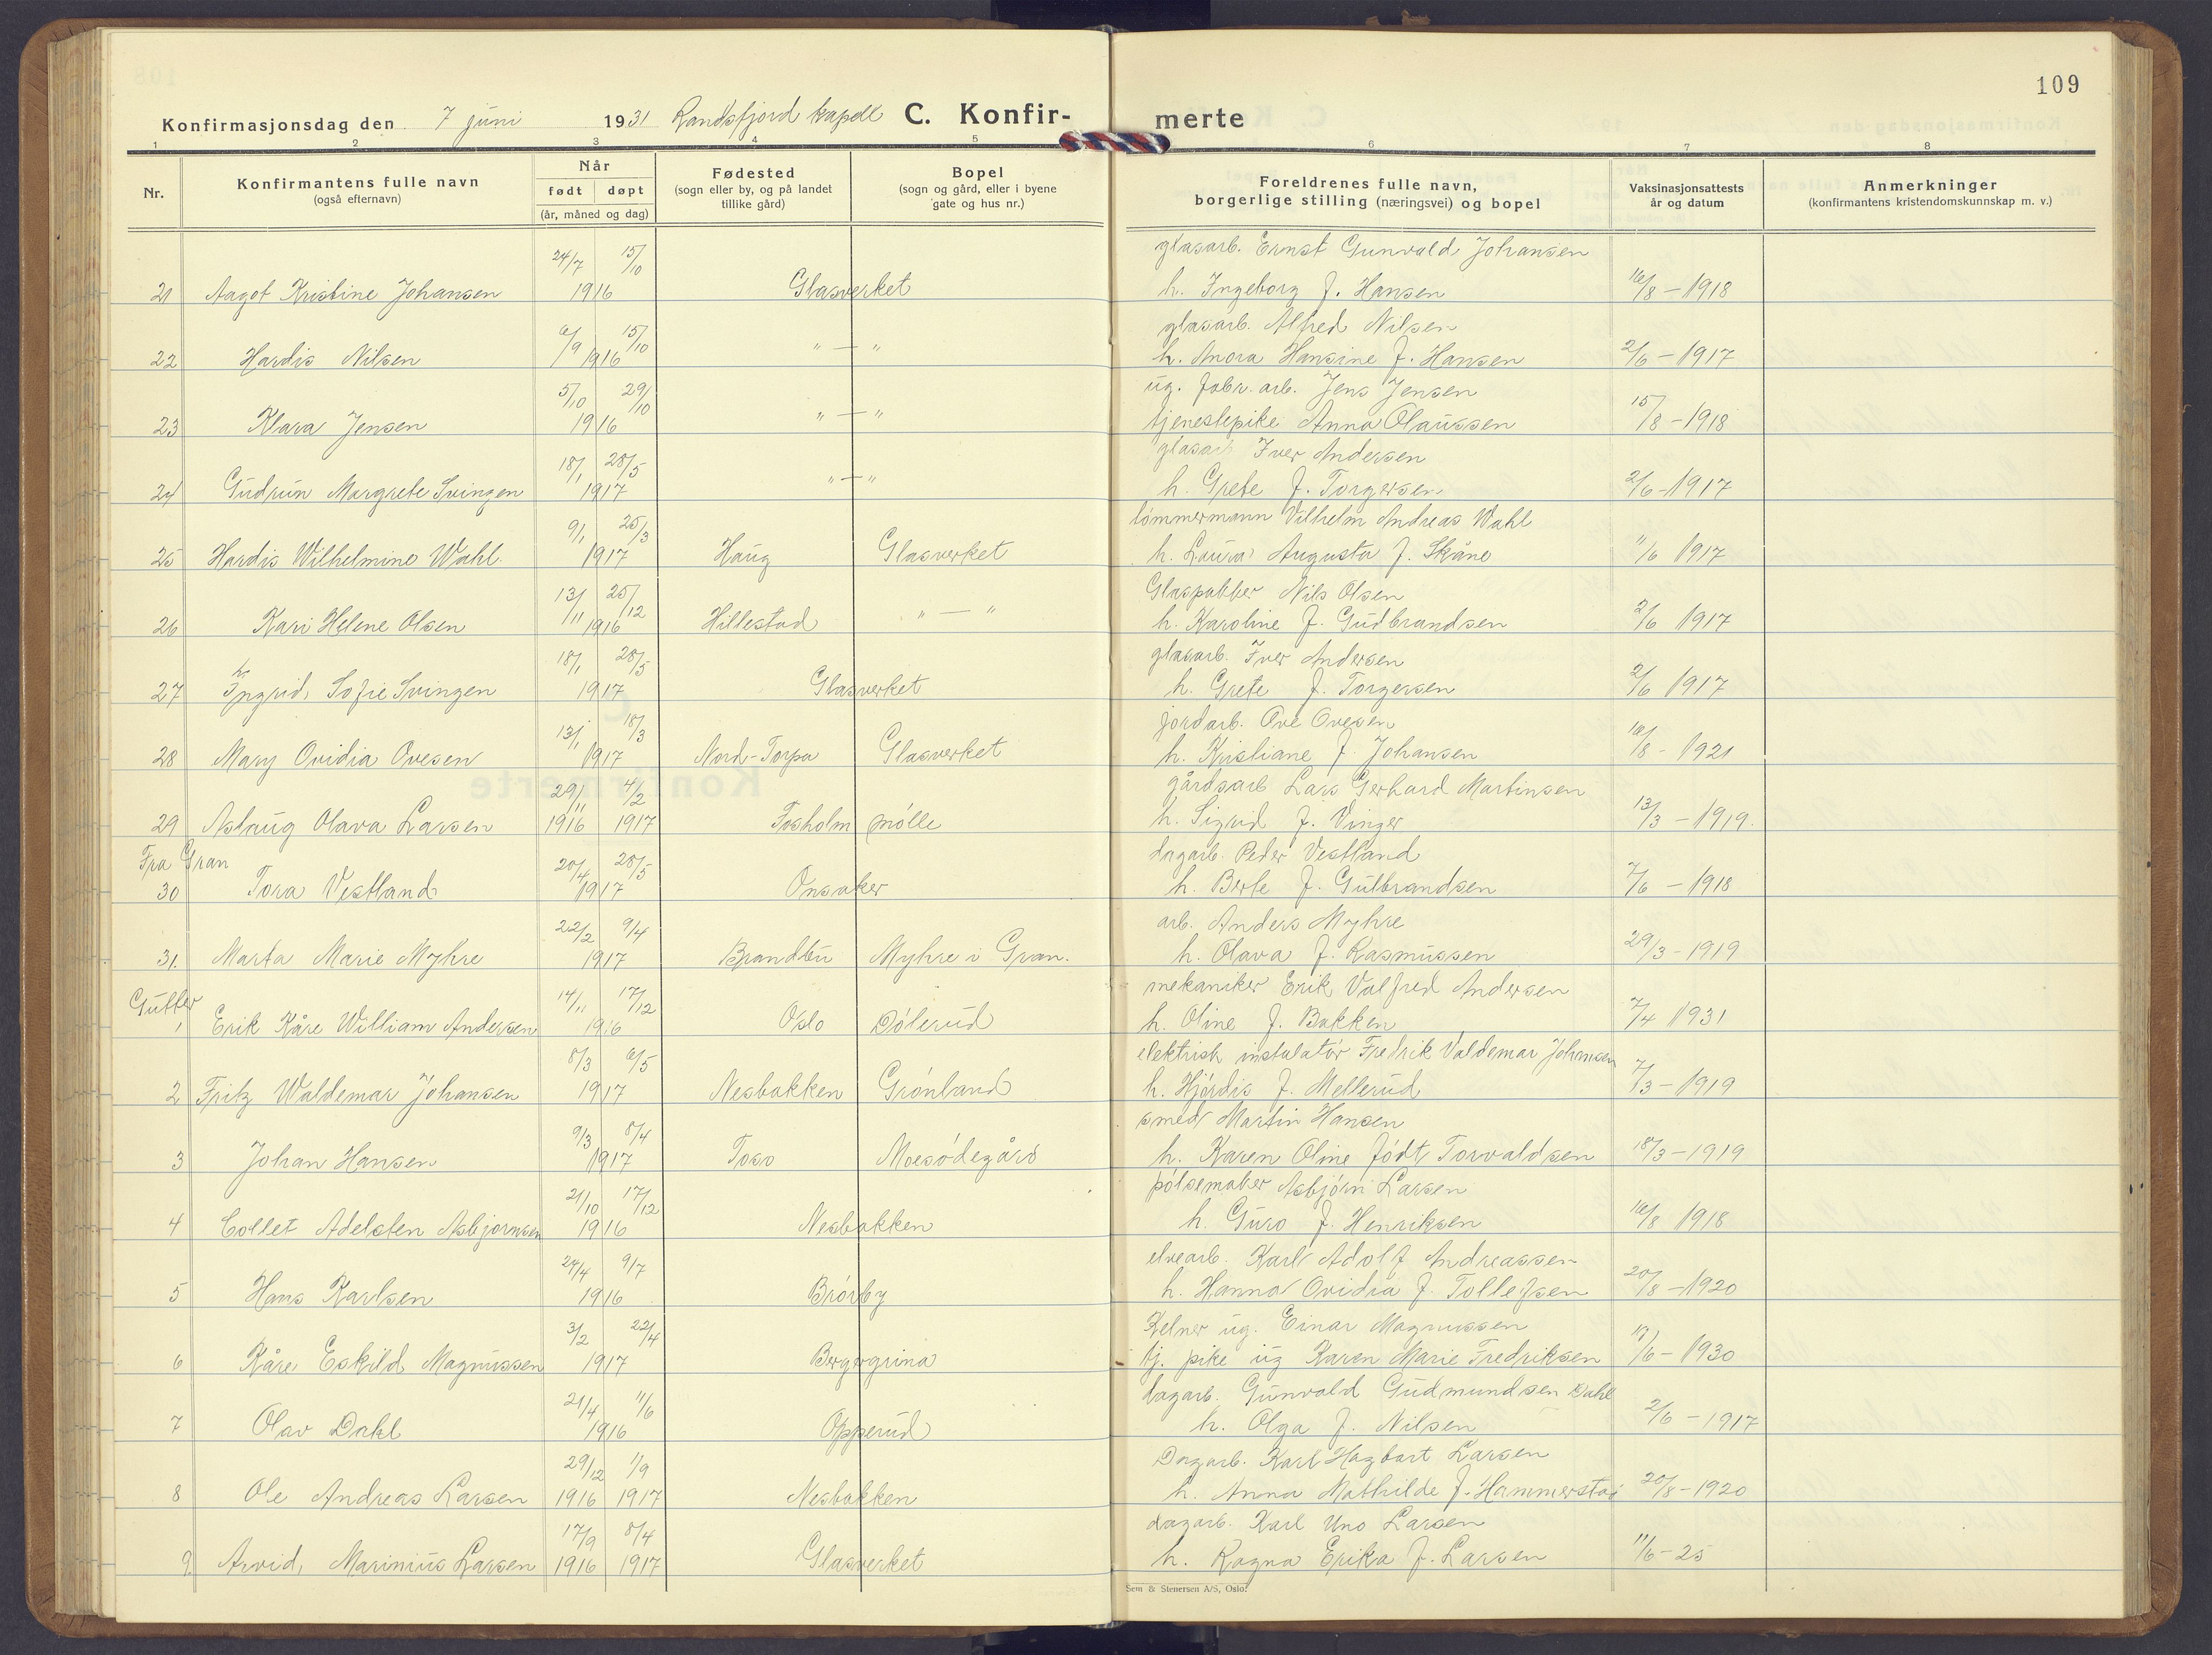 109
Konfirmasjonsdag den 7 juni 1931 Randsfjord kapell C. Konfirmerte
1 2 3 4 5 6 7 8
Nr.
Konfirmantens fulle navn
(også efternavn)
Når
født døpt
(år, måned og dag)
Fødested
(sogn eller by, og på landet
tillike gård)
Bopel
(sogn og gård, eller i byene
gate og hus nr.)
Foreldrenes fulle navn,
borgerlige stilling (næringsvei) og bopel
Vaksinasjonsattests
år og datum
Anmerkninger
(konfirmantens kristendomskunnskap m. v.)
24/7 15/10 glasarb. Ernst Gunvald Johansen
21 Aagot Kristine Johansen 1916 Glasverket h. Ingeborg f. Hansen 16/8 - 1918
6/9 15/10 glasarb. Alfred Nilsen
22 Hardis Nilsen 1916 " — " h. Hansine f. Hansen 2/6 - 1917
5/10 29/10 ug. fabr. arb. Jens Jensen
23 Klara Jensen 1916 " — " tjenestepike Anna Olaussen 15/8 - 1918
18/1 28/5 Iver Andersen
24 Gudrun Margrete Svingen 1917 " — " h. Grete f. Torgersen 2/6 - 1917
9/1 25/3 tømmermann Vilhelm Andreas Wahl
25 Hardis Wilhelmine Wahl 1917 Haug Glasverket h. Laura Augusta f. Skåne 11/6 1917
13/11 25/12 Glaspakker Nils Olsen
26 Kari Helene Olsen 1916 Hillestad " — " h. Karoline f. Gudbrandsen 2/6 1917
18/1 28/5 glasarb. Iver Andersen
27 Ingrid Sofie Svingen 1917 Glasverket h. Grete f. Torgersen 2/6 1917
13/1 18/3 jordarb. Ove Ovesen
28 Mary Ovidia Ovesen 1917 Nord-Torpa Glasverket h. Kristiane f. Johansen 16/8 - 1921
29/11 4/2 gårdsarb Lars Gerhard Martinsen
29 Aslaug Olava Larsen 1916 1917 Fosholm mølle h. Sigrid f. Vinger 13/3 - 1919.
Fra Gran 20/4 28/5 dagarb. Peder Vestland
30 Tora Vestland 1917 Onsaker h. Berte f. Gulbrandsen 7/6 - 1918
22/2 9/4 arb. Anders Myhre
31. Marta Marie Myhre 1917 Brandbu Myhre i Gran. h. Olava f. Rasmussen 29/3 - 1919
Gutter 14/11 17/12 mekaniker Erik Valfred Andersen
1 Erik Kåre William Andersen 1916 Oslo Dølerud h. Oline f. Bakken 7/4 1931
8/3 6/5 elektrisk instalatør Fredrik Valdemar Johansen
2 Fritz Waldemar Johansen 1917 Nesbakken Grønland h. Hjørdis f. Mellerud 7/3 - 1919
9/3 8/4 smed Martin Hansen
3 Johan Hansen 1917 Toso Moesødegård h. Karen Oline født Torvaldsen 18/3 - 1919
21/10 17/12 pølsemaker Asbjørn Larsen
4 Collet Adelsten Asbjørnsen 1916 Nesbakken h. Guro f. Henriksen 16/8 1918
24/4 9/7 elvearb. Karl Adolf Andreassen
5 Hans Karlsen 1916 Brørby h. Hanna Ovidia f. Tollefsen 20/8 - 1920
3/2 22/4 Kelner ug. Einar Magnussen
6 Kåre Eskild Magnussen 1917 Bergergrina tj. pike ug Karen Marie Fredriksen /6 - 1930
21/4 11/6 dagarb. Gunvald Gudmundsen Dahl
7 Olav Dahl 1916 Opperud h. Olga f. Nilsen 2/6 - 1917
29/12 1/9 Dagarb. Karl Hagbart Larsen
8 Ole Andreas Larsen 1916 1917 Nesbakken h. Anna Mathilde f. Hammerstad 20/8 - 1920
17/9 8/4 dagarb. Karl Uno Larsen
9. Arvid Marinius Larsen 1916 1917 Glasverket h. Ragna Erika f. Larsen 11/6 - 25
Sem & Stenersen A/S, Oslo.